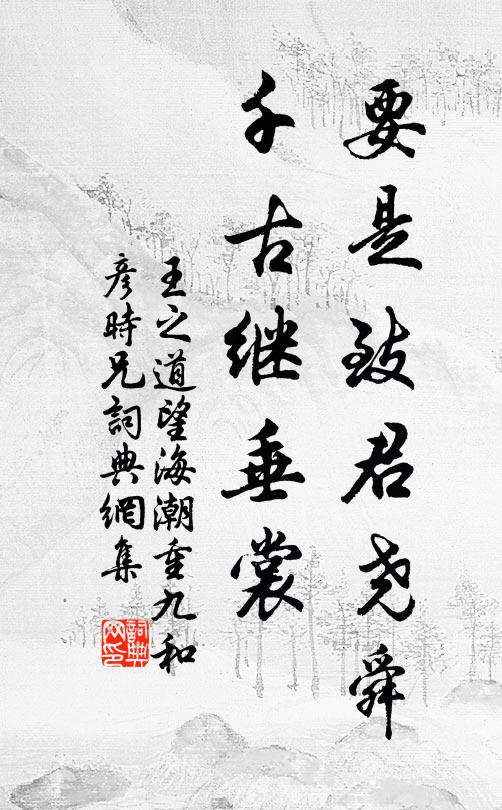 要是致君尧舜
千古继垂裳
王之道望海潮重九和
彦時兄詞典網集
詞典
网印